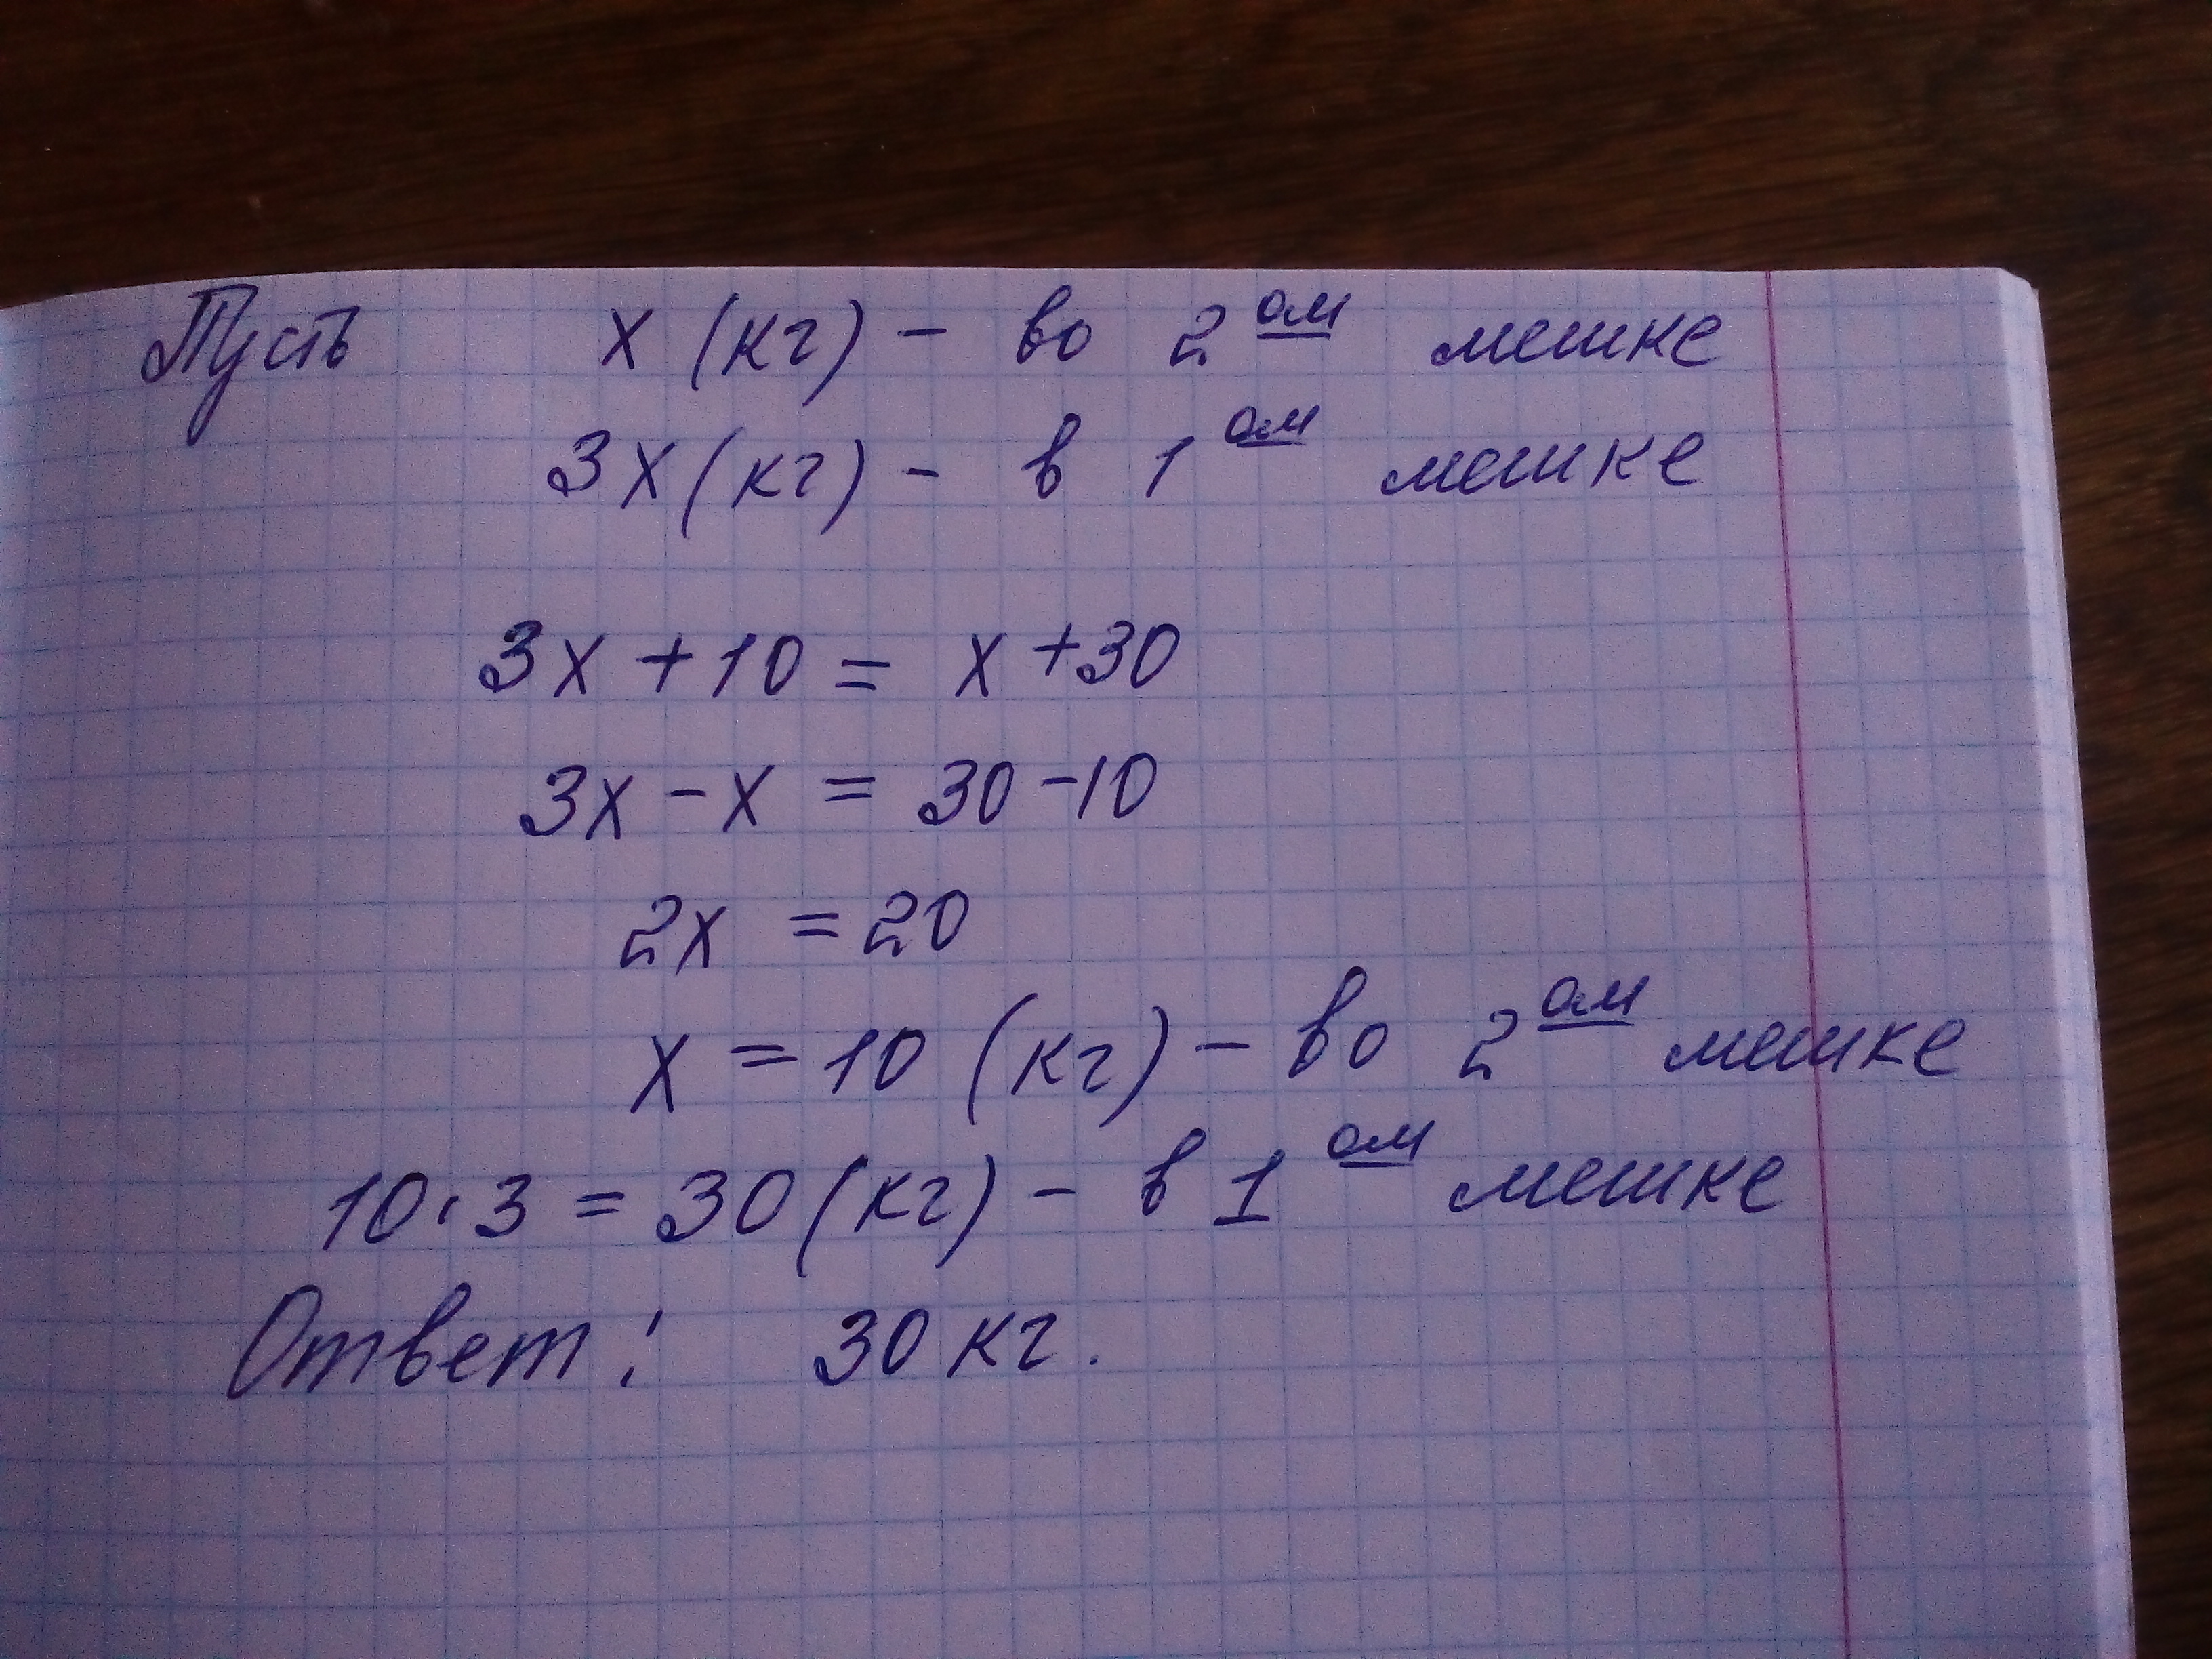 Пусть x (кг) - во 2ом мешке
3x (кг) - в 1ом мешке
3x + 10 = x + 30
3x - x = 30 - 10
2x = 20
x = 10 (кг) - во 2ом мешке
10 · 3 = 30 (кг) - в 1ом мешке
Ответ: 30 кг.